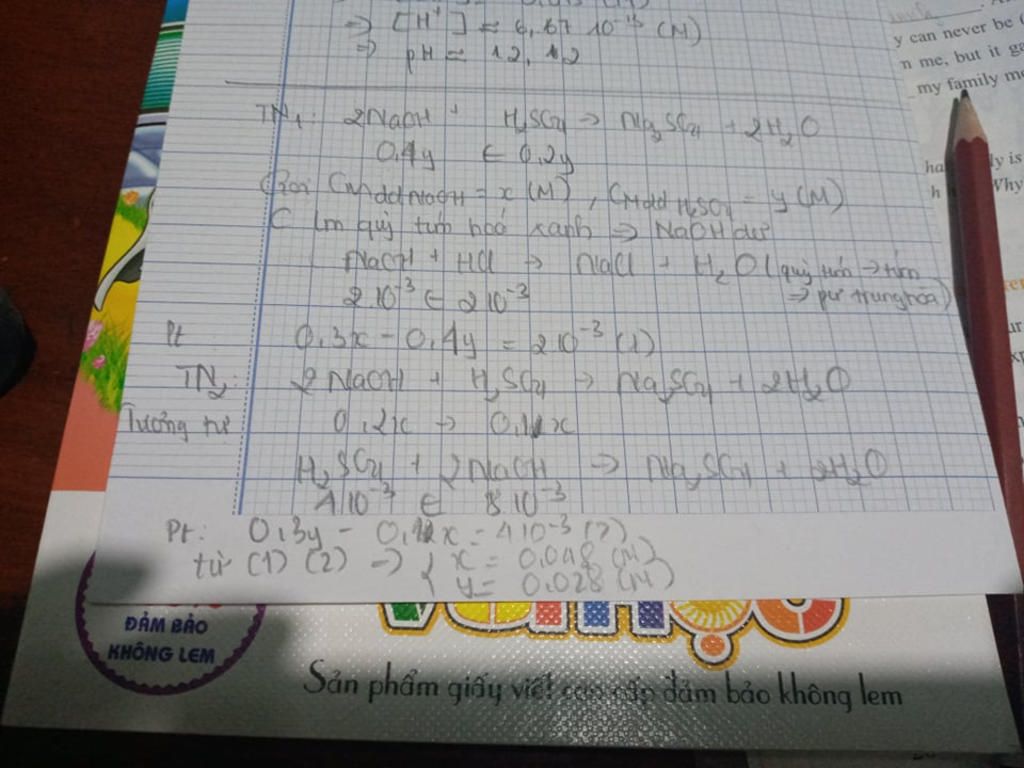 ⇒ [H⁺] ≈ 6,67 10⁻¹³ (M)
⇒ pH ≈ 12,12
TN₁: 2NaOH + H₂SO₄ → Na₂SO₄ + 2H₂O
0,4y ← 0,2y
Gọi CMddNaOH = x (M), CMdd H₂SO₄ = y (M)
C làm quỳ tím hoá xanh ⇒ NaOH dư
NaOH + HCl → NaCl + H₂O (quỳ tím → tím
2 10⁻³ ← 2 10⁻³ ⇒ pư trung hòa)
Pt 0,3x - 0,4y = 2 10⁻³ (1)
TN₂: 2NaOH + H₂SO₄ → Na₂SO₄ + 2H₂O
Tương tự 0,2x → 0,1x
H₂SO₄ + 2NaOH → Na₂SO₄ + 2H₂O
4 10⁻³ ← 8 10⁻³
Pt: 0,3y - 0,1x = 4 10⁻³ (2)
từ (1) (2) ⇒ { x = 0,048 (M)
y = 0,028 (M)
y can never be
n me, but it
my family
ly is
Why
ĐẢM BẢO
KHÔNG LEM
Sản phẩm giấy viết cao cấp đảm bảo không lem